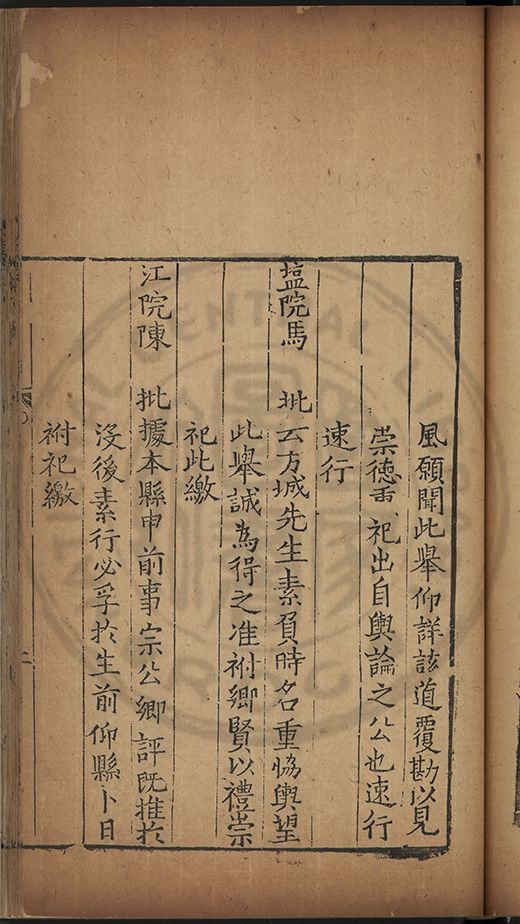 風願聞此舉仰詳該道覆勘以見
崇德重祀出自輿論之公也速行
速行
塩院馬 批云方城先生素負時名重恊輿望
此舉誠為得之准祔鄉賢以禮崇
祀此繳
江院陳 批據本縣申前事宗公鄉評旣推於
沒後素行必孚於生前仰縣卜日
祔祀繳
二